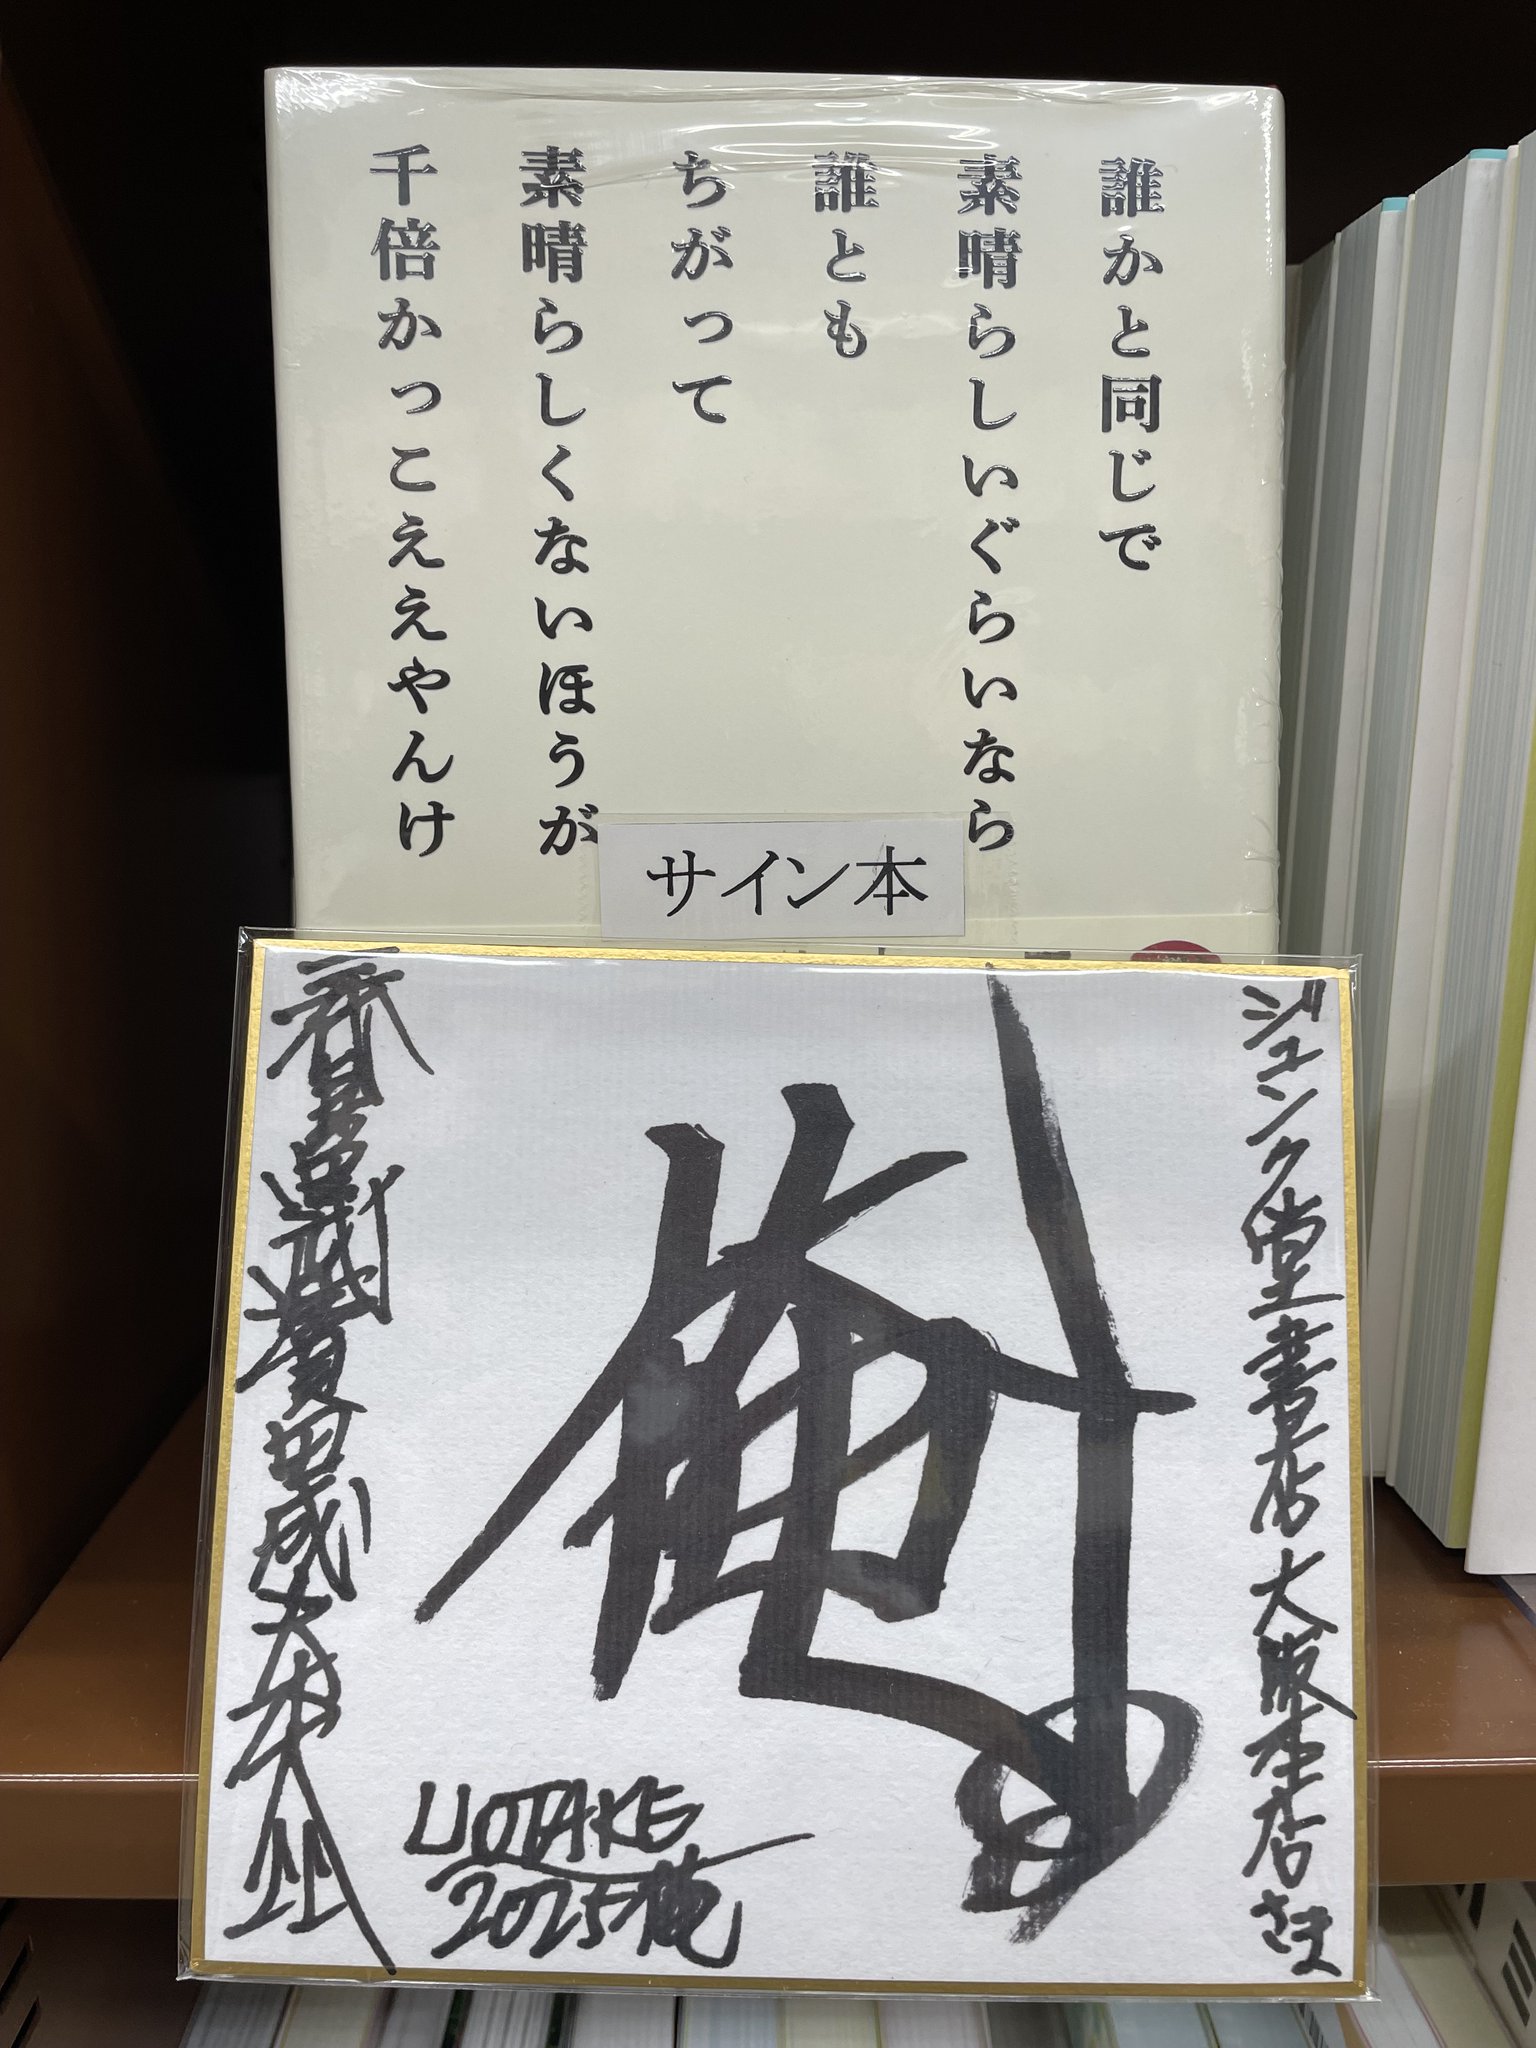 誰かと同じで
素晴らしいぐらいなら
誰とも
ちがって
素晴らしくないほうが
千倍かっこええやんけ
サイン本
ジュンク堂書店大阪本店さま
俺
UOTAKE
2025 俺